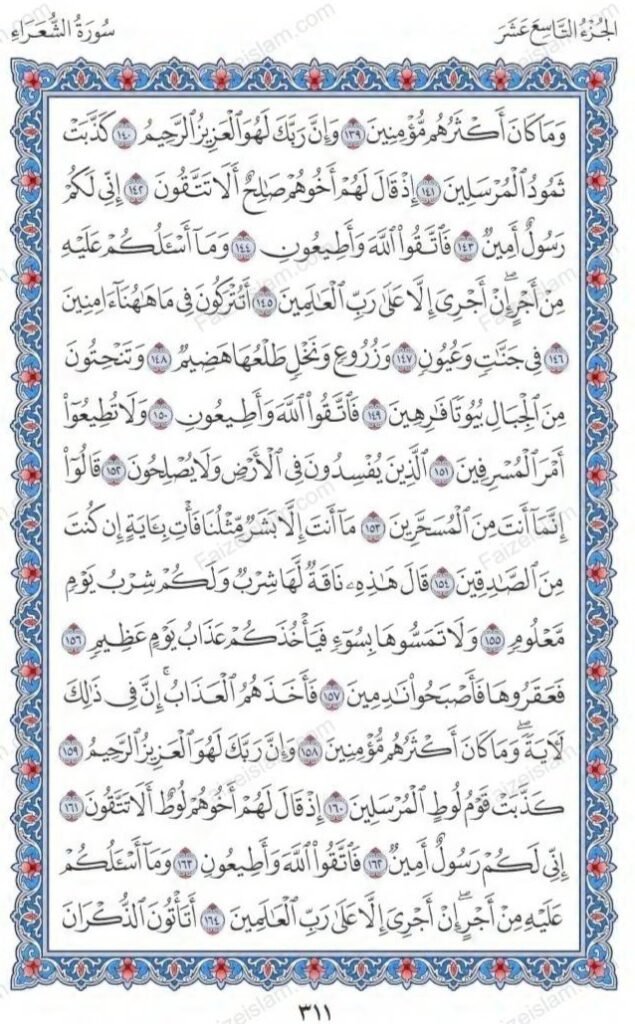 الجُزْءُ التَّاسِعَ عَشَرَ
سُورَةُ الشُّعَرَاءِ
وَمَا كَانَ أَكْثَرُهُم مُّؤْمِنِينَ ١٣٩ وَإِنَّ رَبَّكَ لَهُوَ ٱلْعَزِيزُ ٱلرَّحِيمُ ١٤٠ كَذَّبَتْ
ثَمُودُ ٱلْمُرْسَلِينَ ١٤١ إِذْ قَالَ لَهُمْ أَخُوهُمْ صَٰلِحٌ أَلَا تَتَّقُونَ ١٤٢ إِنِّى لَكُمْ
رَسُولٌ أَمِينٌ ١٤٣ فَٱتَّقُوا۟ ٱللَّهَ وَأَطِيعُونِ ١٤٤ وَمَآ أَسْـَٔلُكُمْ عَلَيْهِ
مِنْ أَجْرٍ ۖ إِنْ أَجْرِىَ إِلَّا عَلَىٰ رَبِّ ٱلْعَٰلَمِينَ ١٤٥ أَتُتْرَكُونَ فِى مَا هَٰهُنَآ ءَامِنِينَ
١٤٦ فِى جَنَّٰتٍ وَعُيُونٍ ١٤٧ وَزُرُوعٍ وَنَخْلٍ طَلْعُهَا هَضِيمٌ ١٤٨ وَتَنْحِتُونَ
مِنَ ٱلْجِبَالِ بُيُوتًا فَٰرِهِينَ ١٤٩ فَٱتَّقُوا۟ ٱللَّهَ وَأَطِيعُونِ ١٥٠ وَلَا تُطِيعُوٓا۟
أَمْرَ ٱلْمُسْرِفِينَ ١٥١ ٱلَّذِينَ يُفْسِدُونَ فِى ٱلْأَرْضِ وَلَا يُصْلِحُونَ ١٥٢ قَالُوٓا۟
إِنَّمَآ أَنتَ مِنَ ٱلْمُسَحَّرِينَ ١٥٣ مَآ أَنتَ إِلَّا بَشَرٌ مِّثْلُنَا فَأْتِ بِـَٔايَةٍ إِن كُنتَ
مِنَ ٱلصَّٰدِقِينَ ١٥٤ قَالَ هَٰذِهِۦ نَاقَةٌ لَّهَا شِرْبٌ وَلَكُمْ شِرْبُ يَوْمٍ
مَّعْلُومٍ ١٥٥ وَلَا تَمَسُّوهَا بِسُوٓءٍ فَيَأْخُذَكُمْ عَذَابُ يَوْمٍ عَظِيمٍ ١٥٦
فَعَقَرُوهَا فَأَصْبَحُوا۟ نَٰدِمِينَ ١٥٧ فَأَخَذَهُمُ ٱلْعَذَابُ ۗ إِنَّ فِى ذَٰلِكَ
لَـَٔايَةً ۖ وَمَا كَانَ أَكْثَرُهُم مُّؤْمِنِينَ ١٥٨ وَإِنَّ رَبَّكَ لَهُوَ ٱلْعَزِيزُ ٱلرَّحِيمُ ١٥٩
كَذَّبَتْ قَوْمُ لُوطٍ ٱلْمُرْسَلِينَ ١٦٠ إِذْ قَالَ لَهُمْ أَخُوهُمْ لُوطٌ أَلَا تَتَّقُونَ ١٦١
إِنِّى لَكُمْ رَسُولٌ أَمِينٌ ١٦٢ فَٱتَّقُوا۟ ٱللَّهَ وَأَطِيعُونِ ١٦٣ وَمَآ أَسْـَٔلُكُمْ
عَلَيْهِ مِنْ أَجْرٍ ۖ إِنْ أَجْرِىَ إِلَّا عَلَىٰ رَبِّ ٱلْعَٰلَمِينَ ١٦٤ أَتَأْتُونَ ٱلذُّكْرَانَ
٣١١
Faizeislam.com